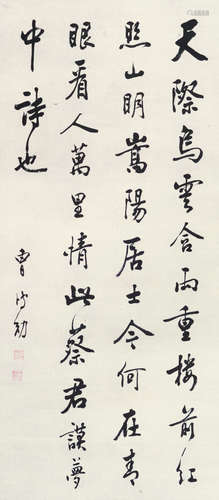 天際烏雲含雨重樓前紅
照山明嵩陽居士今何在青
眼看人萬里情此蔡君謨夢
中詩也